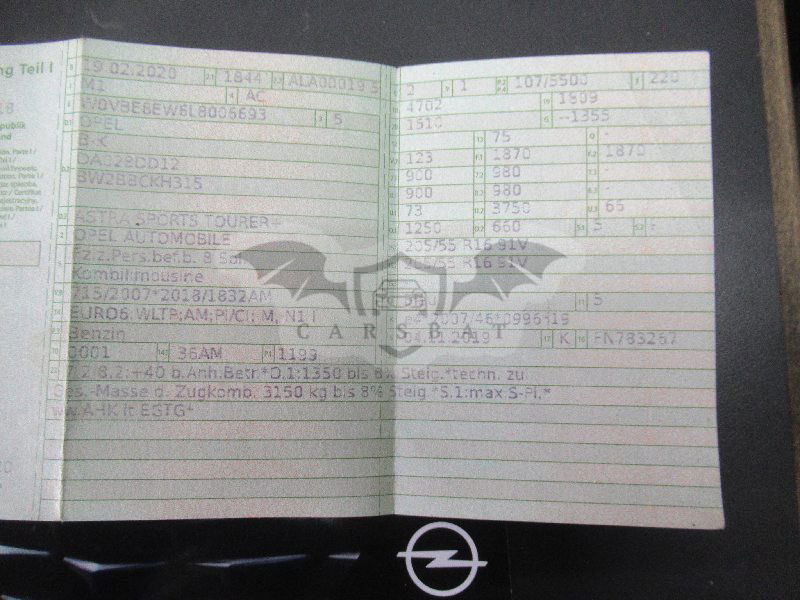 ng Teil I
19.02.2020 2.1 1844 2.2 ALA00019 5
M1 4 AC
W0VBE6EW6L8006693 3 5
OPEL
B-K
BW2BBCKH315
ASTRA SPORTS TOURER+
OPEL AUTOMOBILE
Fz.z.Pers.bef.b. 8
Kombilimousine
715/2007*2018/1832AM
EURO6;WLTP;AM;PI/CI; M, N1 I
Benzin
0001 14.1 36AM P.1 1199
7.2 8.2:+40 b.Anh.Betr.*O.1:1350 bis 8% Steig.*techn. zu
Ges.-Masse d. Zugkomb. 3150 kg bis 8% Steig *S.1:max S-Pl.*
2 9 1 107/5500 T 220
4702 1809
1510 G --1355
75 Q -
123 1870 1870
900 980 -
900 980 -
73 3750 65
1250 660 5 -
205/55 R16 91V
205/55 R16 91V
5
04.11.2019 17 K 16 FN783267
CARSBAT